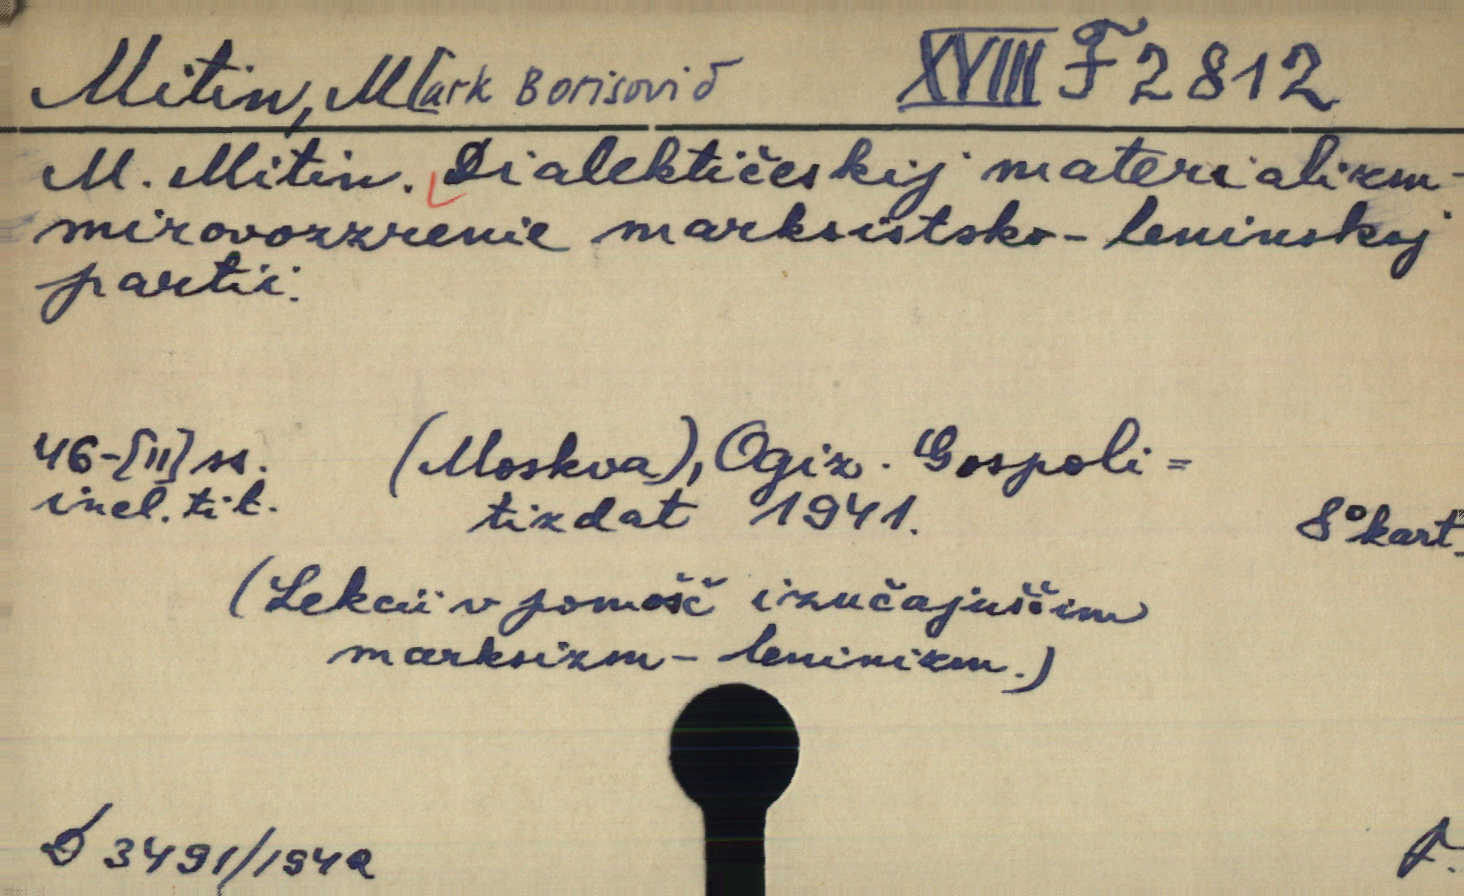 Mitin, M[ark Borisovič XVIII F 2812
M. Mitin. Dialektičeskij materializm-
mirovozzrenie marksistsko-leninskoj
partii.
46-[II] ss. (Moskva), Ogiz. Gospoli=
incl. tit. tizdat 1941. 8° kart.
(Lekcii v pomošč izučajuščim
marksizm-leninizm.)
D 3491/194a